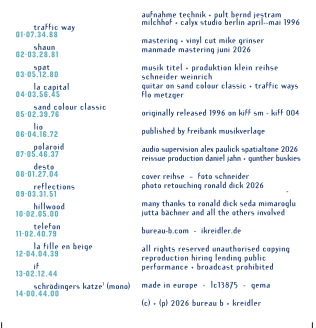 traffic way
01-07.34.68
shaun
02-03.28.81
spat
03-05.12.80
la capital
04-03.56.45
sand colour classic
05-02.39.76
lio
06-04.16.72
polaroid
07-05.46.37
desto
08-01.27.04
reflections
09-03.31.51
hillwood
10-02.05.00
telefon
11-02.40.79
la fille en beige
12-04.04.39
if
13-02.12.44
schrödingers katze' (mono)
14-00.44.00
aufnahme technik • pult bernd jestram
milchhof • calyx studio berlin april-mai 1996
mastering • vinyl cut mike grinser
manmade mastering juni 2026
musik titel • produktion klein reihse
schneider weinrich
guitar on sand colour classic • traffic ways
flo metzger
originally released 1996 on kiff sm - kiff 004
published by freibank musikverlage
audio supervision alex paulick spatialtone 2026
reissue production daniel jahn • gunther buskies
cover reihse - foto schneider
photo retouching ronald dick 2026
many thanks to ronald dick seda mimaroglu
jutta bächner and all the others involved
bureau-b.com - ikreidler.de
all rights reserved unauthorised copying
reproduction hiring lending public
performance • broadcast prohibited
made in europe - lc13875 - gema
(c) • (p) 2026 bureau b • kreidler